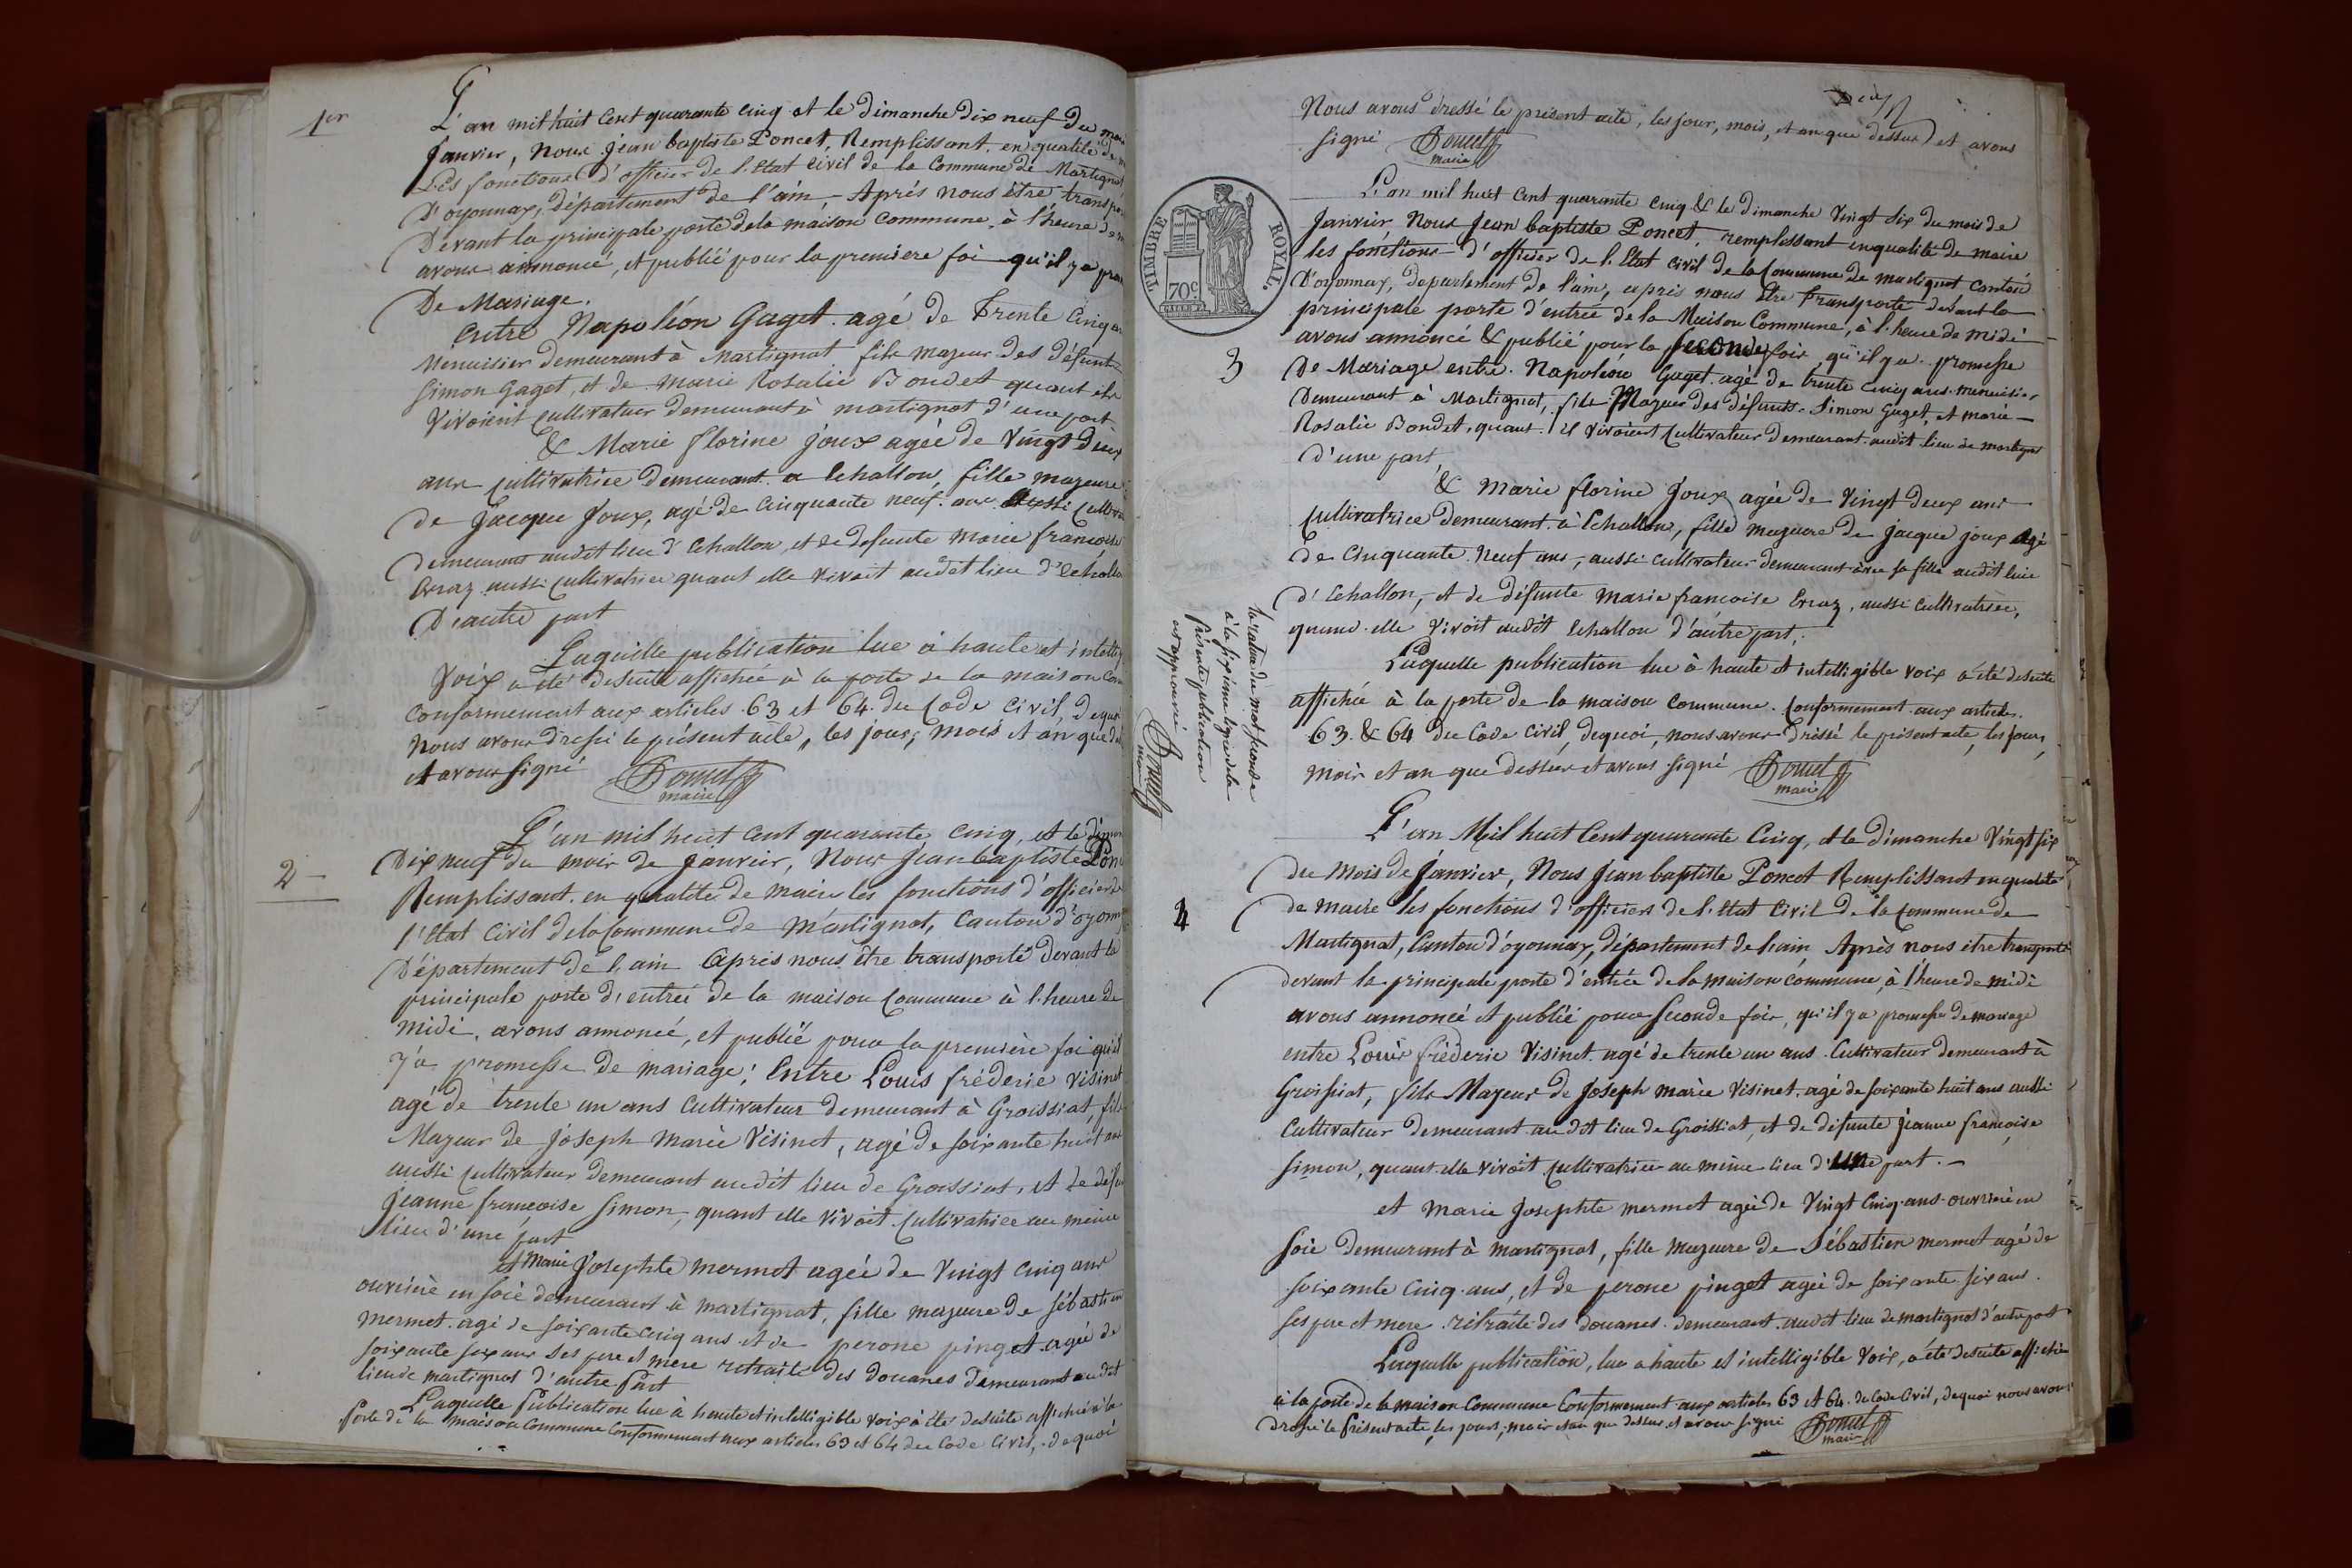 1er
L'an mil huit Cent quarante cinq et le Dimanche Dix neuf Du mois
Janvier, Nous Jean baptiste Poncet, Remplissant en qualité de
Les fonctions d'officier de l'Etat Civil de la Commune de Martignat
D'oyonnax, département de l'ain, Après nous être transporté
Devant la principale porte de la maison Commune, à l'heure de
avons annoncé, et publié pour la premiere foi qu'il ya
De Mariage.
Entre Napoléon Gaget agé de Trente Cinq
Menuisier demeurant à Martignat fils majeur des défunts
Simon Gaget, et de Marie Rosalie Bondet quant ils
Vivoient Cultivateur demeurant à martignat d'une part
& Marie florine joux agée de Vingt Deux
ans Cultivatrice Demeurant a Echallon, fille majeure
De Jacque Joux, agé de Cinquante neuf ans aussi Cultiva
Demeurant audit lieu d'Echallon, et de defunte Marie francoise
Erraz aussi Cultivatrice quant elle vivoit audit lieu d'Echallo
D'autre part
Laquelle publication lue à haute et intelli
Voix a été desuite affichée à la porte de la maison Com
Conformement aux articles 63 et 64 du Code Civil, De quoi
Nous avons dressé le présent acte, les jour, mois et an que
et avons signé Poncet
maire
2
L'an mil huit Cent quarante Cinq, et le diman
Dix neuf du mois de Janvier, Nous Jean baptiste Ponc
Remplissant en qualité de maire les fonctions d'officier de
l'Etat Civil de la Commune de Martignat, Canton d'oyonn
Département de l'ain Après nous être transporté Devant la
principale porte d'entrée de la maison Commune à l'heure de
midi, avons annoncé, et publié pour la première foi qu'il
y'a promesse de mariage; Entre Louis fréderic Visinet
agé de trente un ans Cultivateur demeurant à Groissiat, fils
Majeur de Joseph Marie Visinet, agé de soixante huit ans
aussi Cultivateur demeurant audit lieu de Groissiat, et de défu
Jeanne francoise Simon, quant elle vivoit Cultivatrice au même
lieu d'une part
et Marie Josephte mermet agée de Vingt cinq ans
ouvrière en soie demeurant à martignat, fille majeure de Sébastien
Mermet agé de soixante cinq ans et de perone pinget agée de
soixante six ans Ses pere et mere retraite des douanes Demeurant audit
lieu de martignat d'autre part
Laquelle Publication lue à haute et intelligible voix à éte desuite affichée à la
porte de la maison Commune Conformement aux articles 63 et 64 du Code Civil, de quoi
Deux
Nous avons dressé le présent acte, les jour, mois, et an que dessus et avons
signé Poncet
maire
TIMBRE ROYAL
70c
L'an mil huit Cent quarante Cinq & le dimanche Vingt six du mois de
Janvier, Nous Jean baptiste Poncet, remplissant en qualité de maire
les fonctions d'officier de l'Etat civil de la Commune de Martignat Canton
D'oyonnax, departement de l'ain, après nous être transporté devant la
principale porte d'entrée de la Maison Commune, à l'heure de midi
avons annoncé & publié pour la seconde fois, qu'il ya promesse
3
De Mariage entre Napoléon Gaget agé de trente cinq ans menuisier
Demeurant à Martignat, fils Majeur des défunts Simon Gaget, et marie
Rosalie Bondet, quant il vivoient Cultivateur Demeurant audit lieu de martignat
d'une part
& Marie florine Joux agée de Vingt deux ans
Cultivatrice demeurant à Echallon, fille majeure de jacque joux agé
De Cinquante Neuf ans, aussi Cultivateur demeurant avec sa fille audit lieu
d'Echallon, et de défunte Marie francoise Erraz, aussi Cultivatrice,
quand elle vivoit audit Echallon d'autre part.
Laquelle publication lue à haute et intelligible voix a été desuite
affichée à la porte de la maison commune. Conformement aux articles
63 & 64 du Code Civil, dequoi, nous avons dréssé le présent acte, les jours,
mois et an que dessus et avons signé Poncet
maire
la rature du mot seconde
à la sixième ligne de la
présente publication
est approuvée
Poncet
maire
L'an Mil huit Cent quarante Cinq, et le Dimanche Vingt six
du mois de Janvier, Nous Jean baptiste Poncet Remplissant en qualité
4
de Maire les fonctions d'officier de l'Etat Civil de la Commune de
Martignat, Canton d'oyonnax, département de l'ain, Après nous être transporté
devant la principale porte d'entrée de la maison commune, à l'heure de midi
avons annoncé et publié pour seconde fois, qu'il ya promesse de mariage
entre Louis fréderic Visinet agé de trente un ans Cultivateur demeurant à
Groissiat, fils Majeur de Joseph marie Visinet agé de soixante huit ans aussi
Cultivateur demeurant audit lieu de Groissiat, et de défunte Jeanne francoise
Simon, quant elle vivoit Cultivatrice au même lieu d'une part.
et Marie Josephte mermet agée de Vingt Cinq ans ouvriere en
soie demeurant à martignat, fille majeure de Sébastien mermet agé de
soixante Cinq ans, et de perone pinget agée de soixante six ans.
ses pere et mere retraite des douanes demeurant audit lieu de martignat d'autre part
Laquelle publication, lue a haute et intelligible voix, a été desuite affichée
à la porte de la maison Commune Conformement aux articles 63 et 64 du Code Civil, de quoi nous avons
dressé le présent acte, les jours, mois et an que dessus et avons signé Poncet
maire